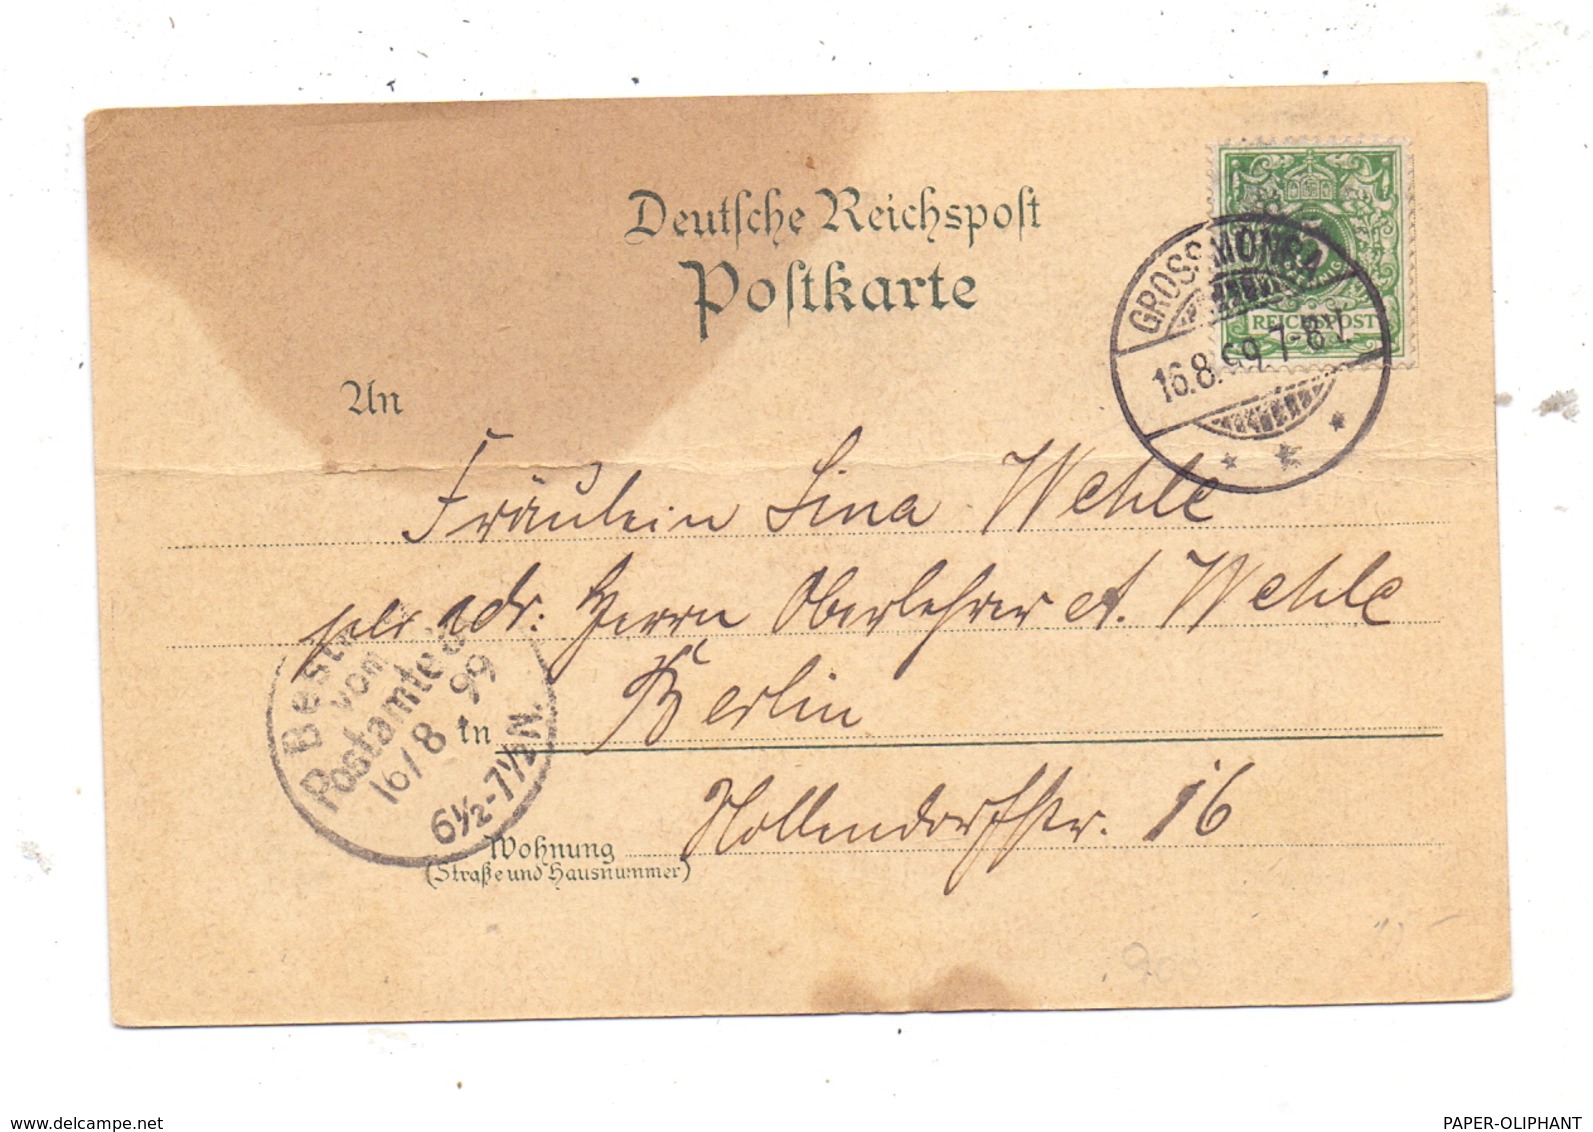 Deutsche Reichspost
Postkarte
GROSS MONRA
16.8.99.7-8V.
REICHSPOST
An
Fräulein Lina Wehle
pr. adr: Herrn Oberlehrer A. Wehle
Bestellt
vom
Postamte
16/8 99
6½-7½N.
in Berlin
Wohnung Nollendorfstr. 16
(Straße und Hausnummer)
900
delcampe.net
PAPER-OLIPHANT